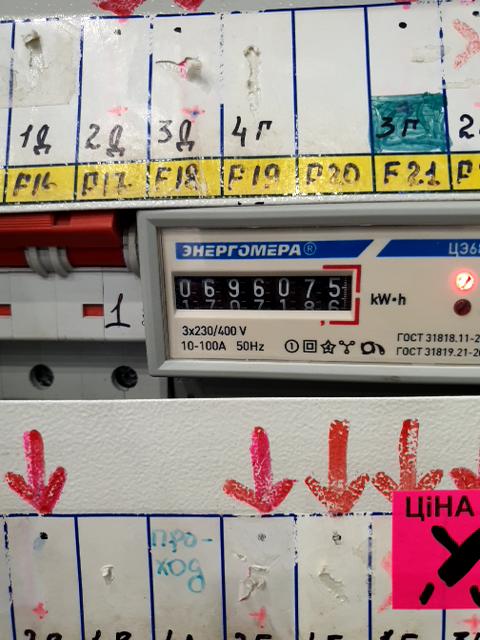 1Д 2Д 3Д 4Г 3Г
F16 F17 F18 F19 F20 F21
ЭНЕРГОМЕРА® ЦЭ68
0696075
kW·h
1
3x230/400 V
10-100A 50Hz
ГОСТ 31818.11-2
ГОСТ 31819.21-20
ЦІНА
про-
ход